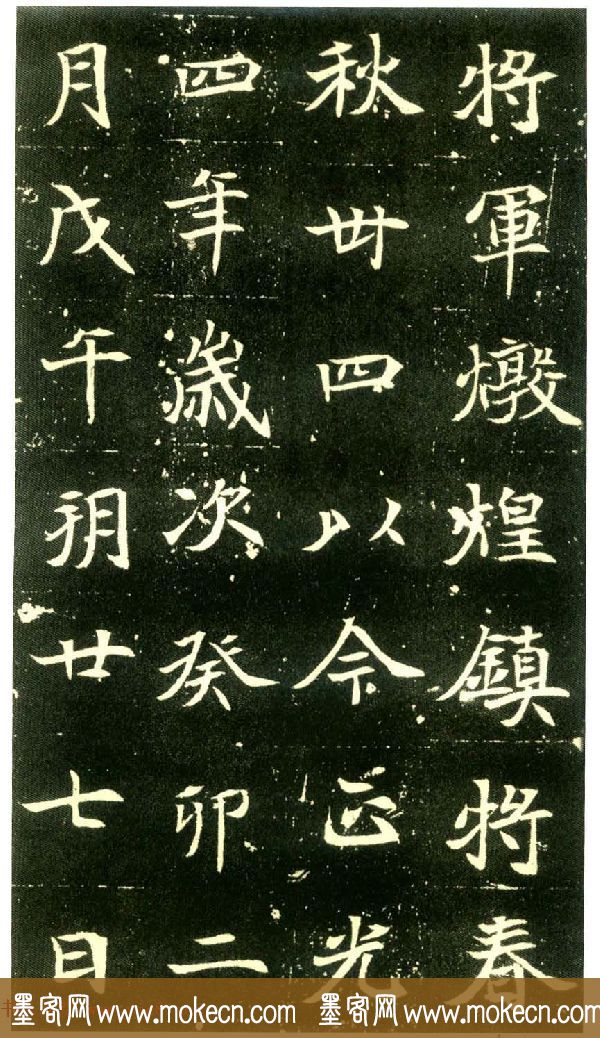 將軍燉煌鎮將春
秋卌四以今正光
四年歲次癸卯二
月戊午朔廿七日
墨客网 www.mokecn.com 墨客网 www.mokecn.com